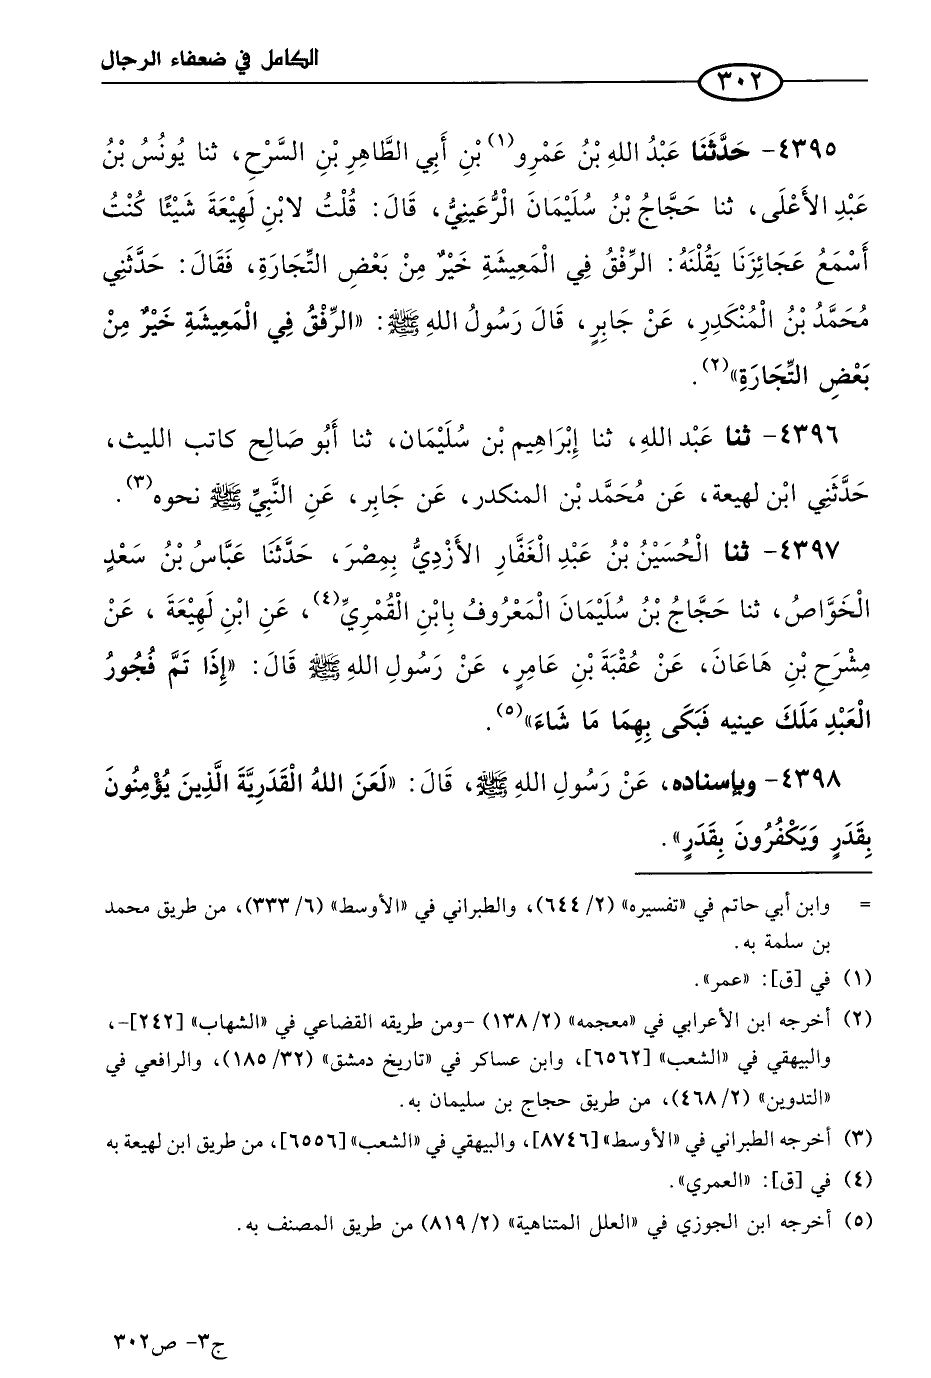 الكامل في ضعفاء الرجال
٣٠٢
٤٣٩٥- حَدَّثَنَا عَبْدُ اللهِ بْنُ عَمْرِو(١) بْنِ أَبِي الطَّاهِرِ بْنِ السَّرْحِ، ثنا يُونُسُ بْنُ
عَبْدِ الأَعْلَى، ثنا حَجَّاجُ بْنُ سُلَيْمَانَ الرُّعَيْنِيُّ، قَالَ: قُلْتُ لابْنِ لَهِيْعَةَ شَيْئًا كُنْتُ
أَسْمَعُ عَجَائِزَنَا يَقُلْنَهُ: الرِّفْقُ فِي الْمَعِيشَةِ خَيْرٌ مِنْ بَعْضِ التِّجَارَةِ، فَقَالَ: حَدَّثَنِي
مُحَمَّدُ بْنُ الْمُنْكَدِرِ، عَنْ جَابِرٍ، قَالَ رَسُولُ اللهِ ﷺ: «الرِّفْقُ فِي الْمَعِيشَةِ خَيْرٌ مِنْ
بَعْضِ التِّجَارَةِ»(٢).
٤٣٩٦- ثنا عَبْد اللهِ، ثنا إِبْرَاهِيم بْن سُلَيْمَان، ثنا أَبُو صَالِح كاتب الليث،
حَدَّثَنِي ابْن لهيعة، عَن مُحَمَّد بْن المنكدر، عَن جَابِر، عَنِ النَّبِيِّ ﷺ نحوه(٣).
٤٣٩٧- ثنا الْحُسَيْنُ بْنُ عَبْدِ الْغَفَّارِ الأَزْدِيُّ بِمِصْرَ، حَدَّثَنَا عَبَّاسُ بْنُ سَعْدٍ
الْخَوَّاصُ، ثنا حَجَّاجُ بْنُ سُلَيْمَانَ الْمَعْرُوفُ بِابْنِ الْقُمْرِيِّ(٤)، عَنِ ابْنِ لَهِيْعَةَ، عَنْ
مِشْرَحِ بْنِ هَاعَانَ، عَنْ عُقْبَةَ بْنِ عامِرٍ، عَنْ رَسُولِ اللهِ ﷺ قَالَ: «إِذَا تَمَّ فُجُورُ
الْعَبْدِ مَلَكَ عينيه فَبَكَى بِهِمَا مَا شَاءَ»(٥).
٤٣٩٨- وبإسناده، عَنْ رَسُولِ اللهِ ﷺ، قَالَ: «لَعَنَ اللهُ الْقَدَرِيَّةَ الَّذِينَ يُؤْمِنُونَ
بِقَدَرٍ وَيَكْفُرُونَ بِقَدَرٍ».
= وابن أبي حاتم في «تفسيره» (٢/ ٦٤٤)، والطبراني في «الأوسط» (٦/ ٣٣٣)، من طريق محمد
بن سلمة به.
(١) في [ق]: «عمر».
(٢) أخرجه ابن الأعرابي في «معجمه» (٢/ ١٣٨) -ومن طريقه القضاعي في «الشهاب» [٢٤٢]-،
والبيهقي في «الشعب» [٦٥٦٢]، وابن عساكر في «تاريخ دمشق» (٣٢/ ١٨٥)، والرافعي في
«التدوين» (٢/ ٤٦٨)، من طريق حجاج بن سليمان به.
(٣) أخرجه الطبراني في «الأوسط» [٨٧٤٦]، والبيهقي في «الشعب» [٦٥٥٦]، من طريق ابن لهيعة به
(٤) في [ق]: «العمري».
(٥) أخرجه ابن الجوزي في «العلل المتناهية» (٢/ ٨١٩) من طريق المصنف به.
ج٣- ص٣٠٢